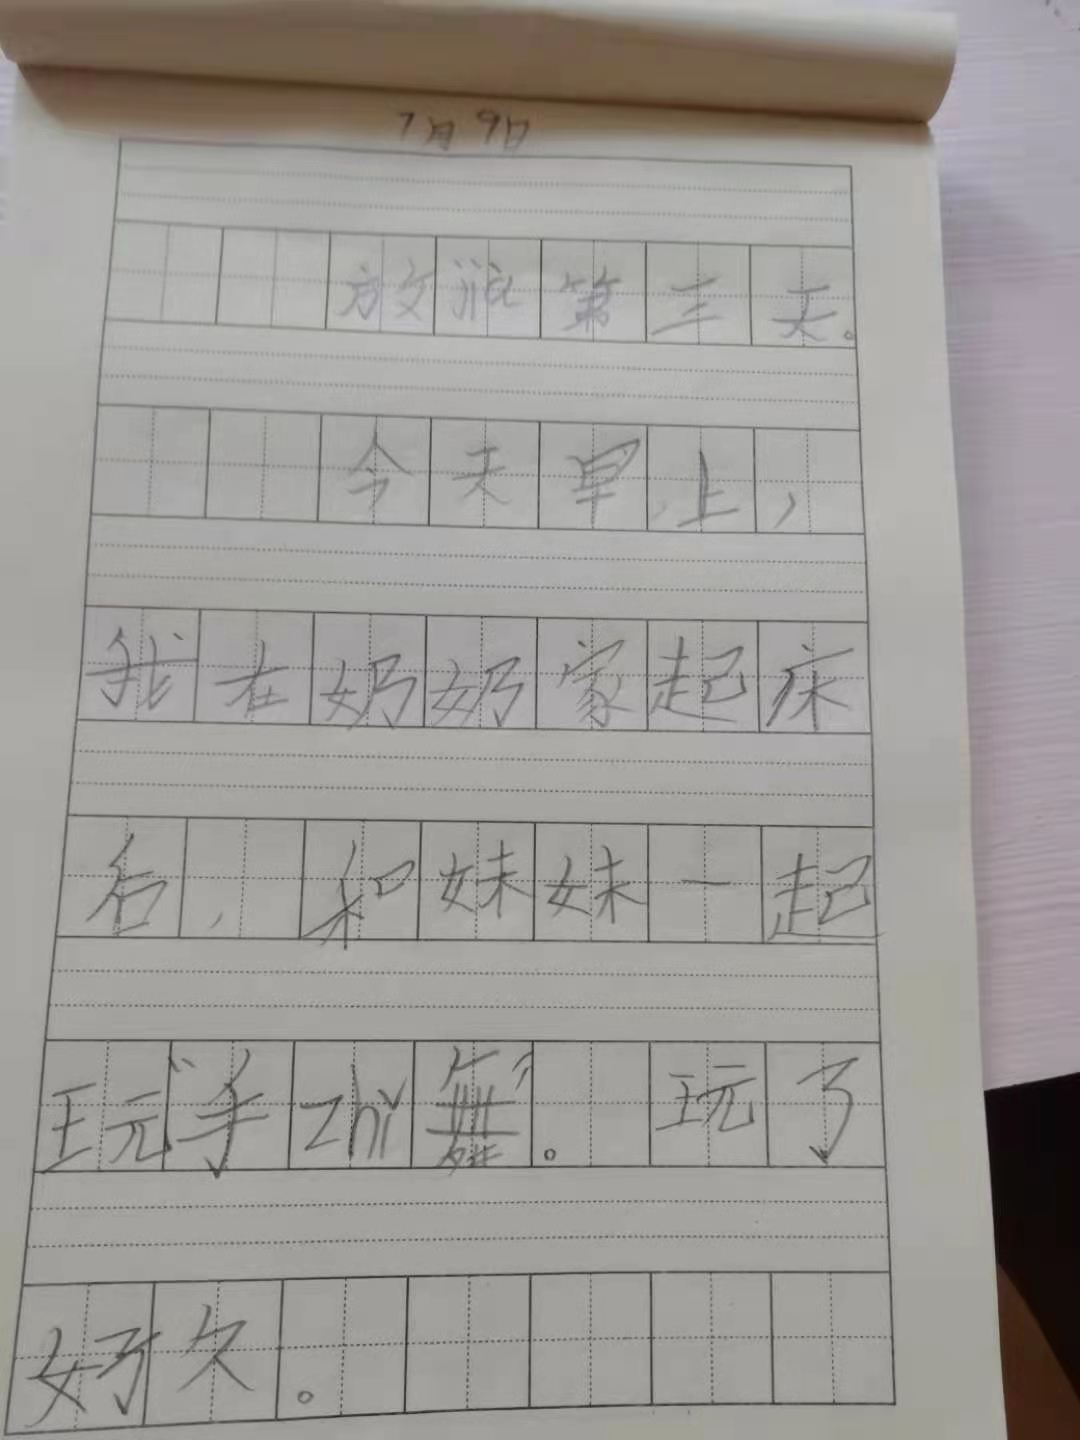 7月9日
放假第三天。
今天早上，
我在奶奶家起床
后，和妹妹一起
玩“手zhǐ舞”。玩了
好久。